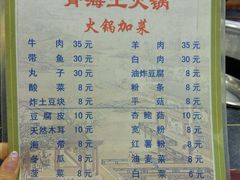 青海土火锅
火锅加菜
牛肉 35元 羊肉 35元
带鱼 30元 白肉 30元
丸子 30元 油炸豆腐 8元
酸菜 8元 粉条 8元
炸土豆块 8元 平菇 8元
豆腐皮 10元 杏鲍菇 10元
天然木耳 10元 宽粉 10元
海带 8元 红薯粉 10元
冬瓜 8元 油麦菜 8元
菠菜 8元 白菜 6元